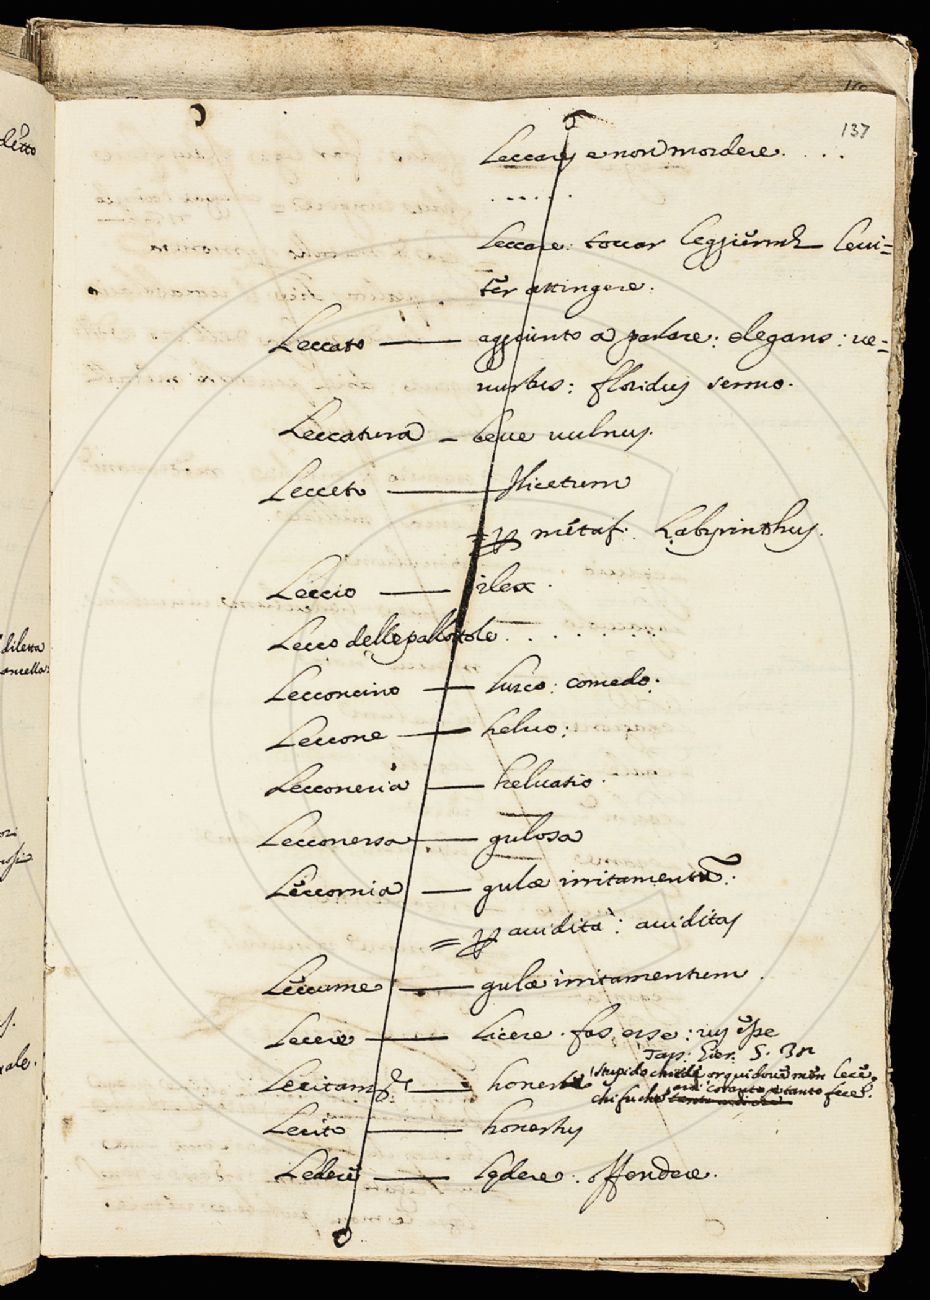 137
Leccare, e non mordere. . . .
. . . . .
Leccare: toccar leggierm.te levi=
ter attingere.
Leccato — aggiunto a parlare: elegans: ve=
nustus: floridus sermo.
Leccatura — leve vulnus.
Lecceto — Ilicetum
= p metaf. Labyrinthus.
Leccio — ilex.
Lecco delle pallottole . . . . .
Lecconcino — lurco: comedo.
Leccone — helluo:
Lecconeria — helluatio.
Lecconessa — gulosa
Leccornia — gulæ irritamentu:
= p avidità: aviditas
Leccume — gulæ irritamentum.
Lecere — licere. fas esse: 
Tass: Gier. 5. 
stupido chiede or qui dove men lece.
chi fu ch' ardì cotanto, e tanto fece.
Lecitam.te — honeste
Lecito — honestus
Ledere — lędere: offendere.